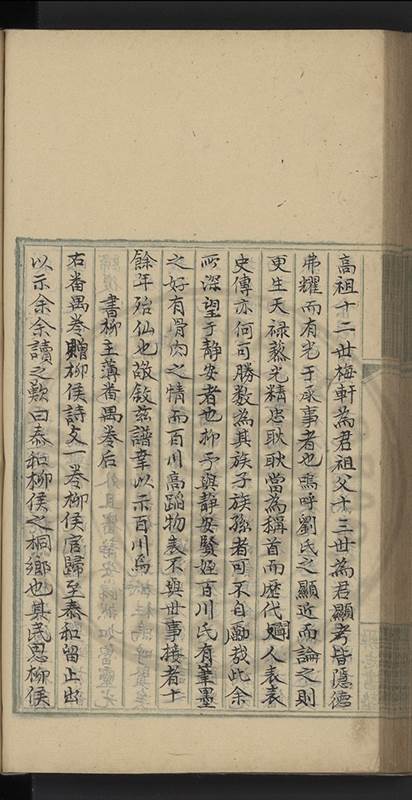 高祖十二世梅軒為君祖父十三世為君顯考皆隱德
弗耀而有光于承事者也嗚呼劉氏之顯近而論之則
更生天祿藜光精忠耿耿當為稱首而歷代嫺人表表
史傳亦何可勝數為其族子族孫者可不自勵哉此余
所深望于静安者也柳予與静安賢姪百川氏有筆墨
之好有骨肉之情而百川高蹈物表不與世事接者十
餘年殆仙也故敘兹譜牽以示百川焉
書柳主薄番禺卷后
右番禺卷贈柳侯詩文一卷柳侯官歸至泰和留止出
以示余余讀之歎曰泰和柳侯之桐鄉也其民思柳侯